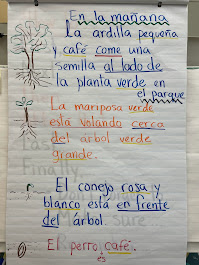 En la mañana
La ardilla pequeña
y café come una
semilla al lado de
la planta verde en
el parque
La mariposa verde
está volando cerca
del árbol verde
grande.
El conejo rosa y
blanco está en frente
del árbol.
El perro café
es